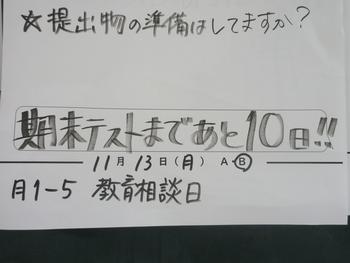 ☆提出物の準備はしてますか?
期末テストまであと10日!!
11月13日(月) A Ⓑ
月1-5 教育相談日